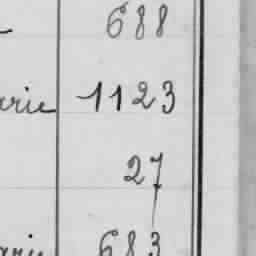 688
arie 1123
27
arie 683